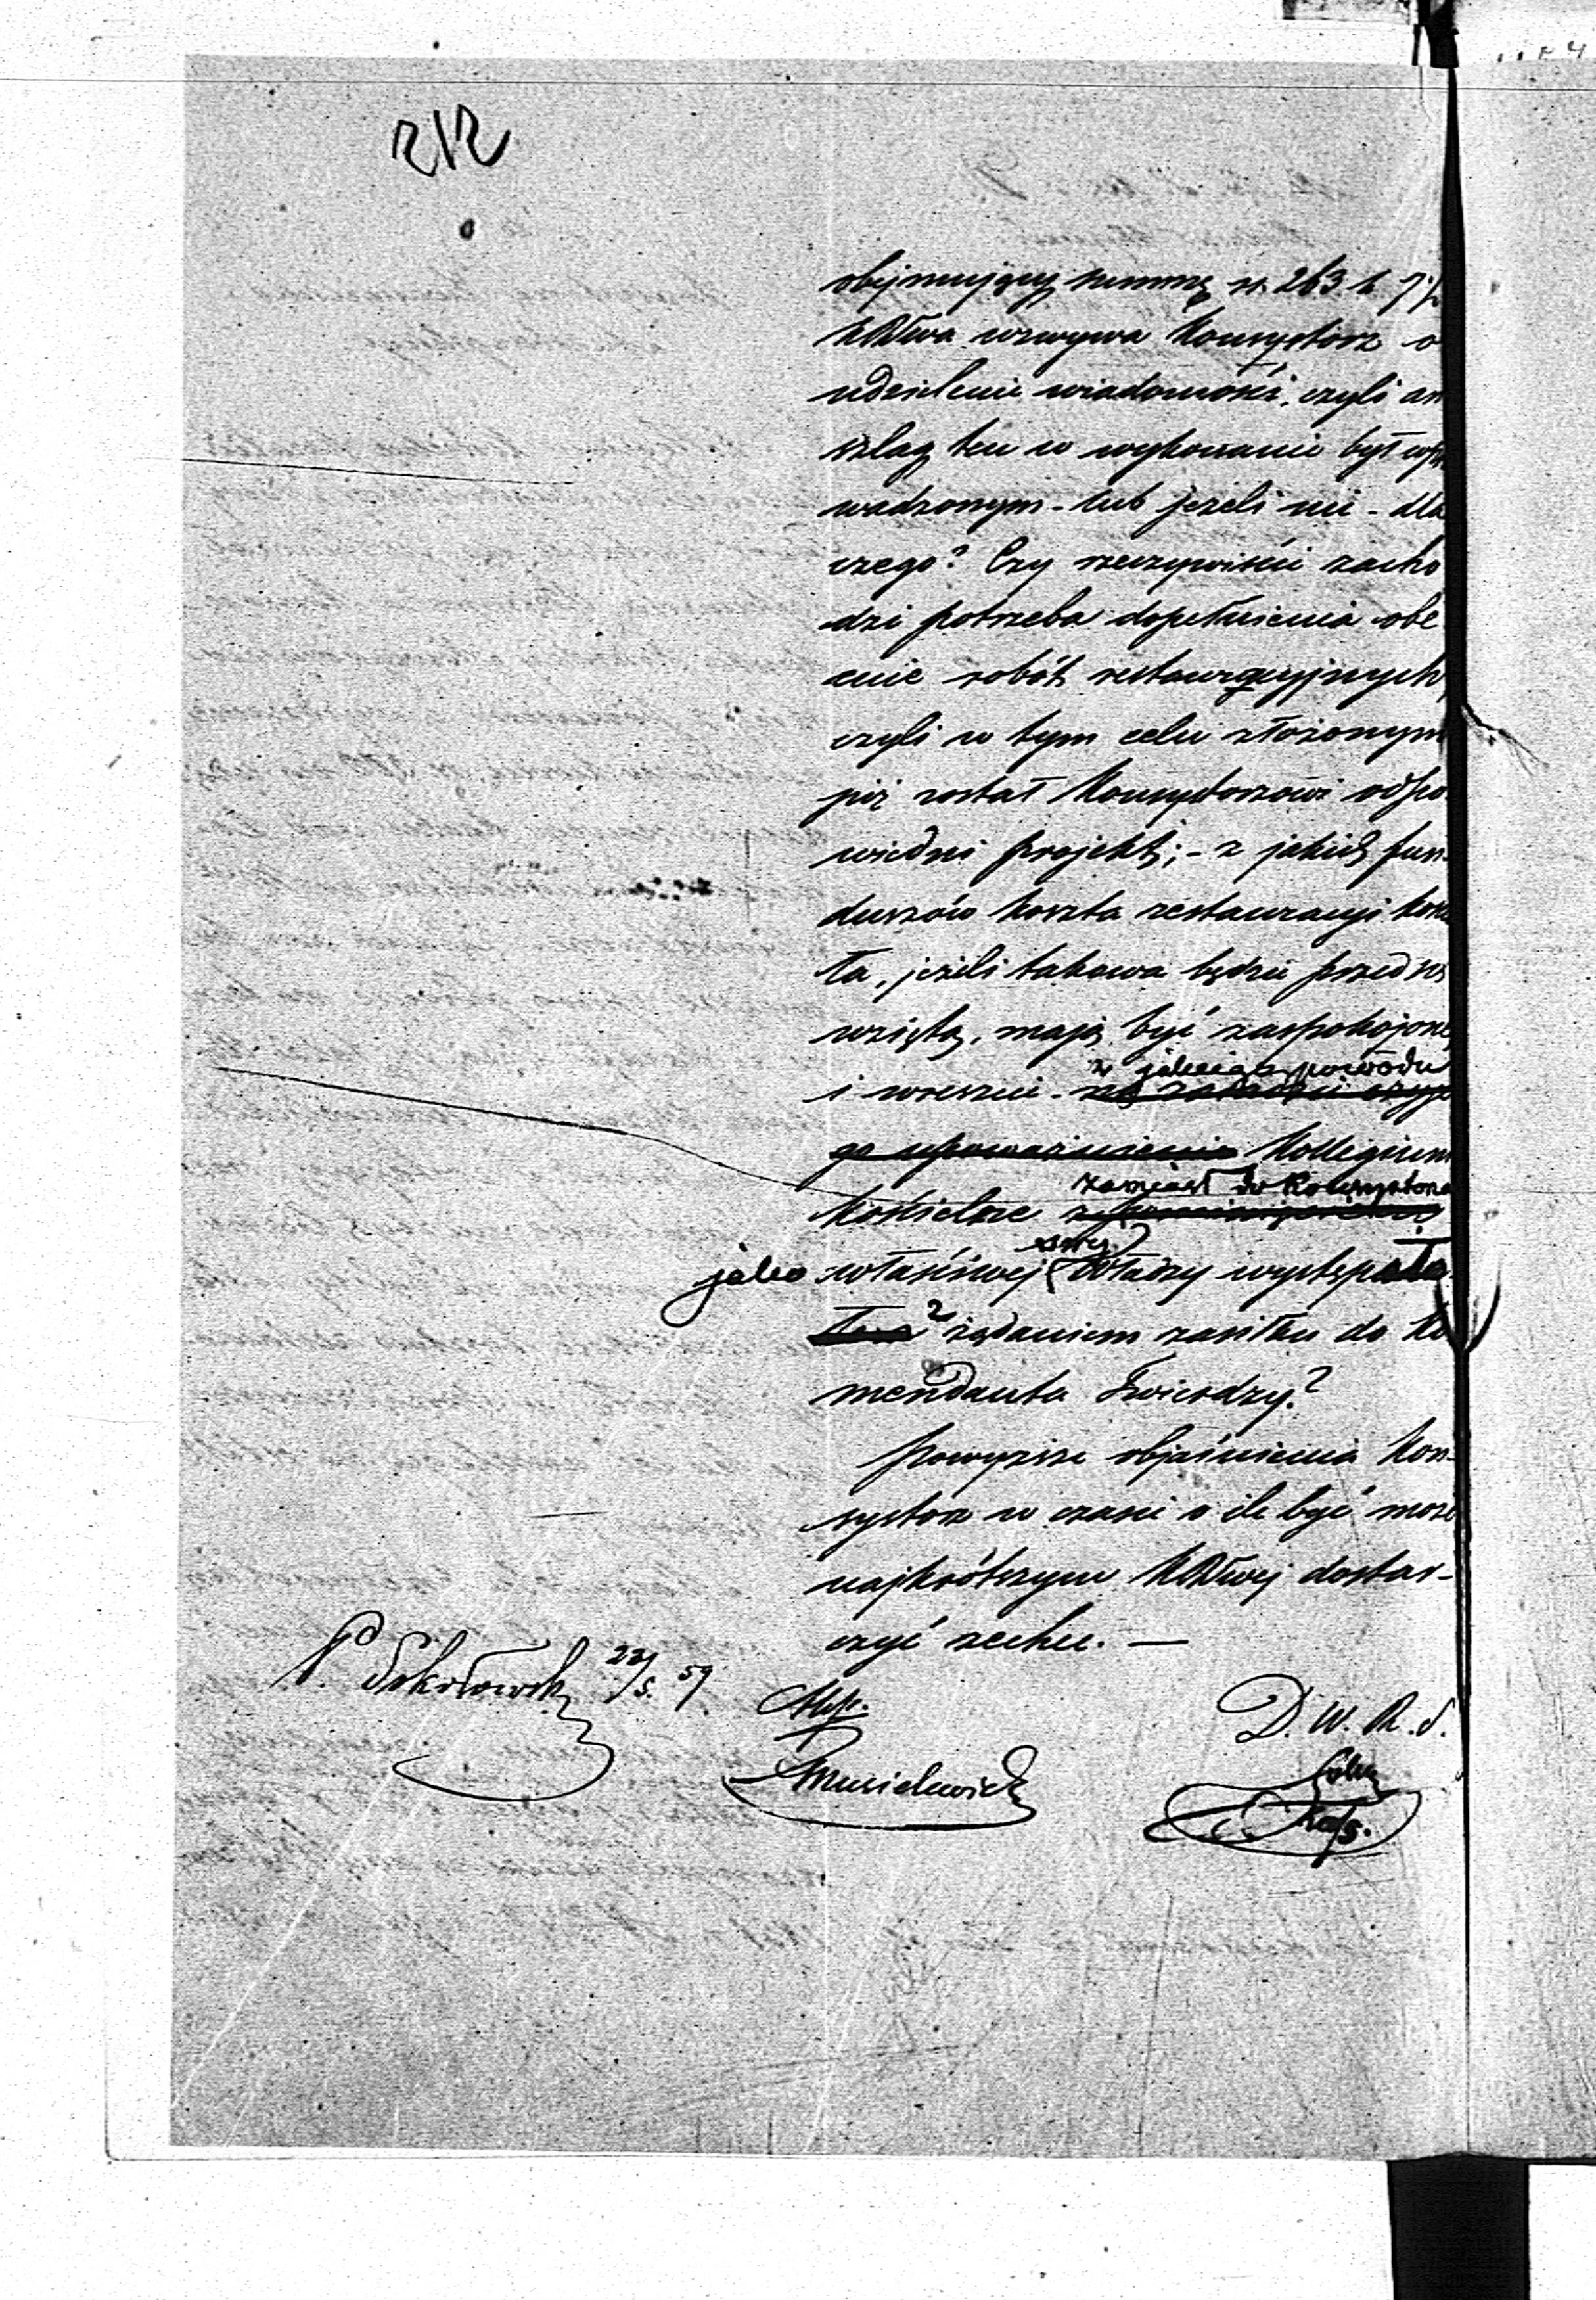 212
obejmujący summę rs. 263 k.
KRSwa wzywa Konsystorz o
udzielenie wiadomości, czyli an
szlag ten w wykonanie był wpro
wadzonym - lub jeżeli nie - dla
czego? Czy rzeczywiście zacho
dzi potrzeba dopełnienia obe
cnie robót restauracyjnych,
czyli w tym celu złożonym
już został Konsystorzowi odpo
wiedni projekt; - z jakich fun-
duszów koszta restauracji kośc
ła, jeżeli takowa będzie przedsię
wziętą, mają być zaspokojone
z jakiego powodu
i wreszcie -
go upoważnienia Kollegium
zamiast do Konsystorza
Kościelne
jako właściwej Władzy wystąpiło
z żądaniem zasiłku do Ko
mendanta Twierdzy?
Powyższe objaśnienia Kon-
systorz w czasie o ile być może
najkrótszym KRSwej dostar-
czyć zechce. —
P. Sokołowski 22/5. 59
D. W. R. S.